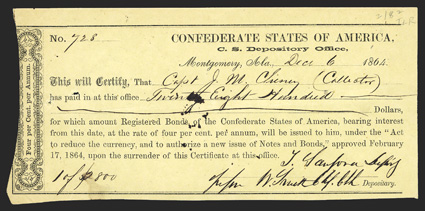 No. 728
CONFEDERATE STATES OF AMERICA,
C. S. Depository Office,
Montgomery, Ala., Dec 6 1864.
This will Certify, That Capt J. M. (Collector)
has paid in at this office Twenty Eight Hundred
Dollars,
for which amount Registered Bonds, of the Confederate States of America, bearing interest
from this date, at the rate of four per cent. per annum, will be issued to him, under the "Act
to reduce the currency, and to authorize a new issue of Notes and Bonds," approved February
17, 1864, upon the surrender of this Certificate at this office.
Depositary.
Four per Cent. per Annum.